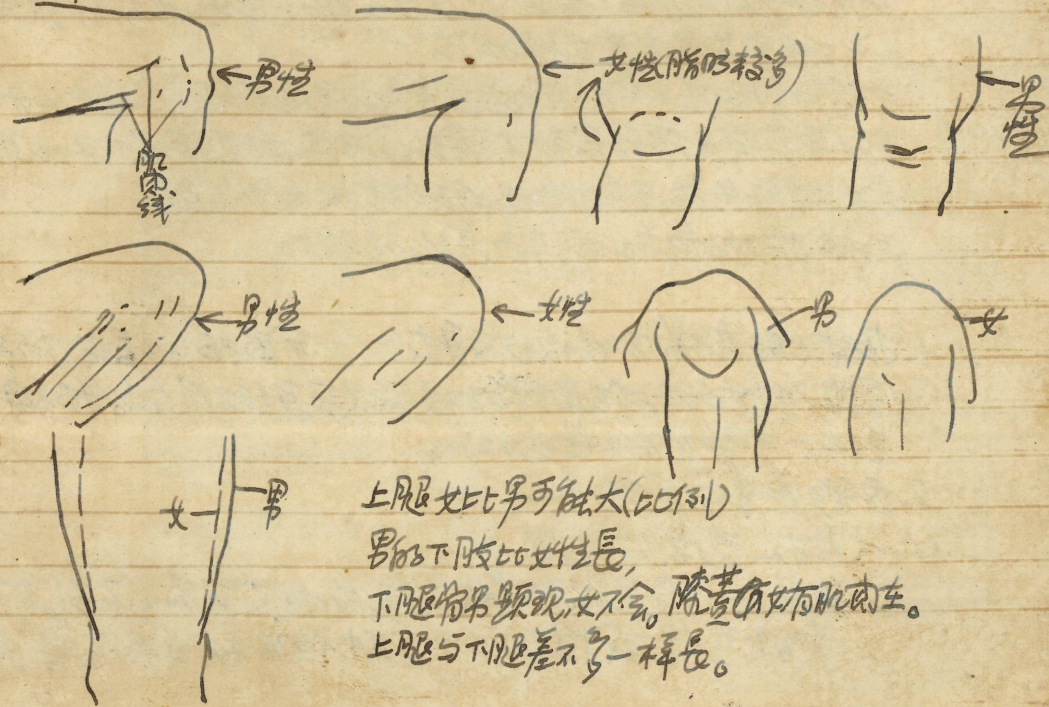 男性
女性(脂肪较多)
男性
肌肉线
男性
女性
男
女
女
男
上腿女比男可能大(比例)
男的下肢比女性長,
下腿骨男显现女不会。膝蓋女有肌肉在。
上腿与下腿差不多一样長。